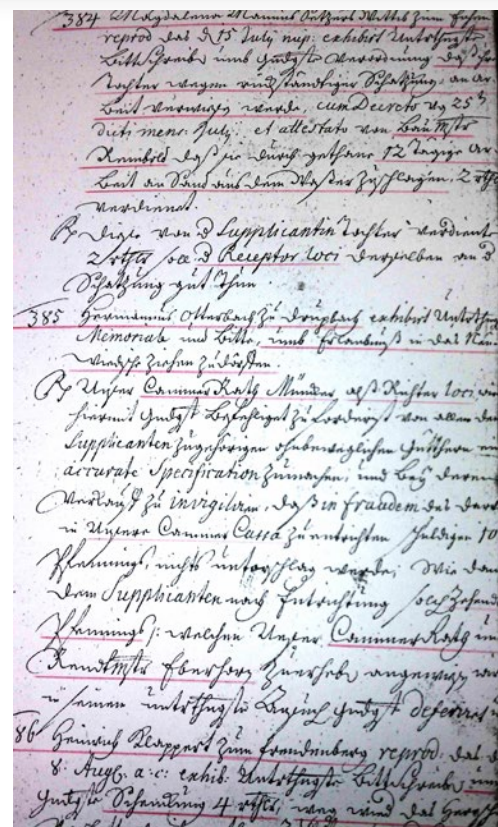 384 Magdalena Mannus Setzers Wittib zum
reprod das d 15 July nup: exhibirt Unterthgste
Bittschreiben umb Gndgste Verordnung daß ihre
Tochter wegen rückständiger Schatzung an Ar-
beit verwiesen werde, cum Decreto vg 25t
dicti mens: July et attestato von Baumstr
Rembold daß sie durch gethane 12 Tägige Ar-
beit an Sand aus dem Wasser zuschlagen, 2 rthlr
verdienet.
Rx diese von d Supplicantin Tochter verdiente
2 rthlr solle d Receptor loci derselben an d
Schatzung gut thun.
385 Hermannus Otterbach zu exhibirt Unterthgste
Memoriale und Bitte, umb Erlaubnuß in das
Wiedsche ziehen zu dörffen.
Rx Unser Cammer Rath Münker alß Richter loci
hiermit Gndgst befehliget zu forderst von allen dem
Supplicanten zugehörigen ohnbeweglichen Gütthern
accurate Specification zu machen, und bey deren
Verkauf zu invigiliren, daß in fraudem des
in Unsere Cammer Cassa zu entrichten schuldigen 10
Pfennings, nichts unterschlag werde; Wie dan
dem Supplicanten nach Entrichtung solch Zehend
Pfennings /: welchen Unser Cammer Rath
Rendtmstr Eberhard zu erheben angewiesen
in seinem unterthgste Gesuch Gndgst deferiret
86 Heinrich Klappert zum freudenberg reprod: das d
8: Aug: a: c: exhib: Unterthgste Bittschreiben umb
Gndgste 4 rthlr, weg